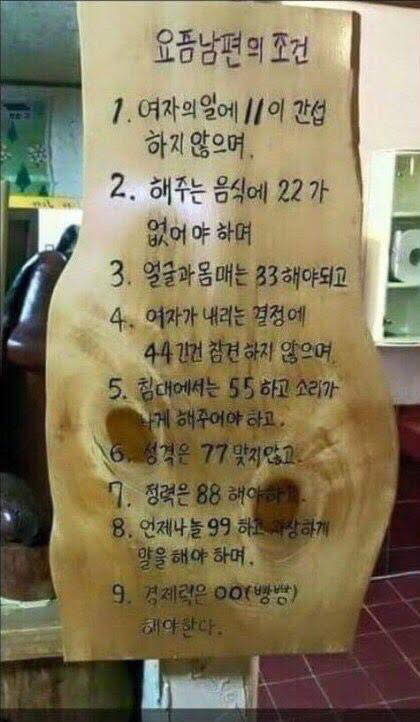 요즘남편의 조건
1. 여자의일에 11이 간섭
하지 않으며.
2. 해주는 음식에 22가
없어야 하며
3. 얼굴과몸매는 33해야되고
4. 여자가 내리는 결정에
44건건 참견 하지 않으며
5. 침대에서는 55하고 소리가
나게 해주어야 하고.
6. 성격은 77맞지않고
7. 정력은 88 해야하며.
8. 언제나늘 99 하고 자상하게
말을 해야 하며.
9. 경제력은 00(빵빵)
해야한다.